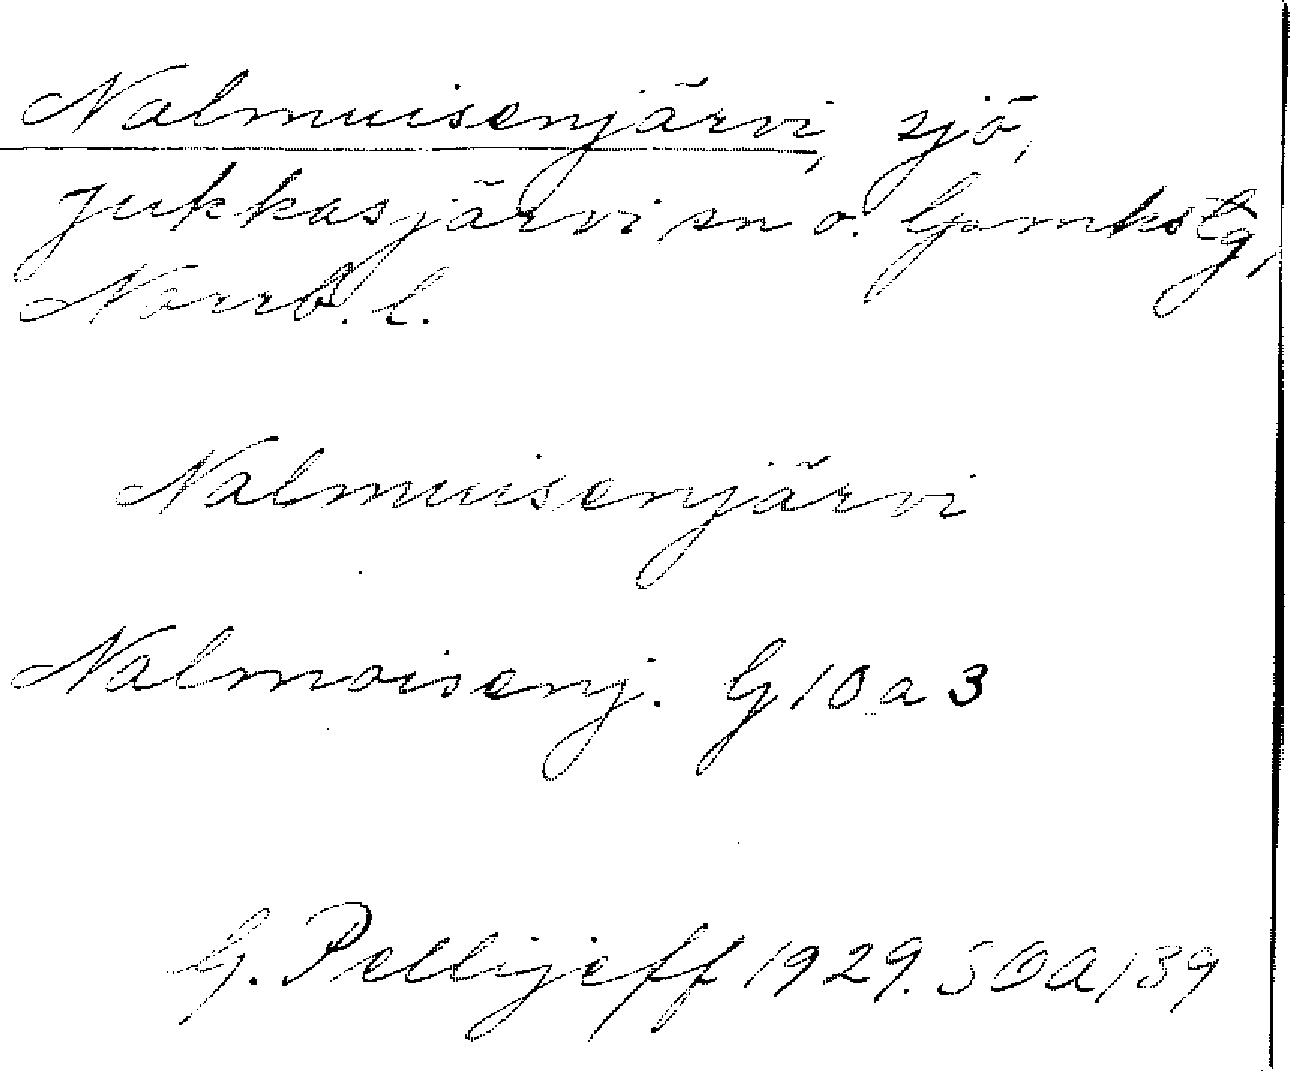 Nalmuisenjärvi, sjö,
Jukkasjärvi sn o. Gamkslg,
Norrb. l.
Nalmuisenjärvi
Nalmoisenj. G 10 a 3
G. Pellijeff 1929. SOA 139